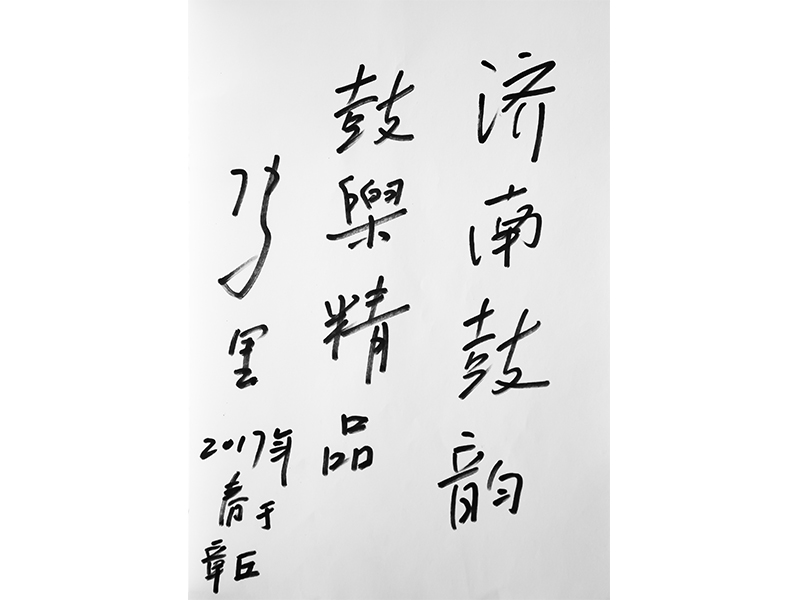 济南鼓韵
鼓樂精品
里
2017年
春于
章丘